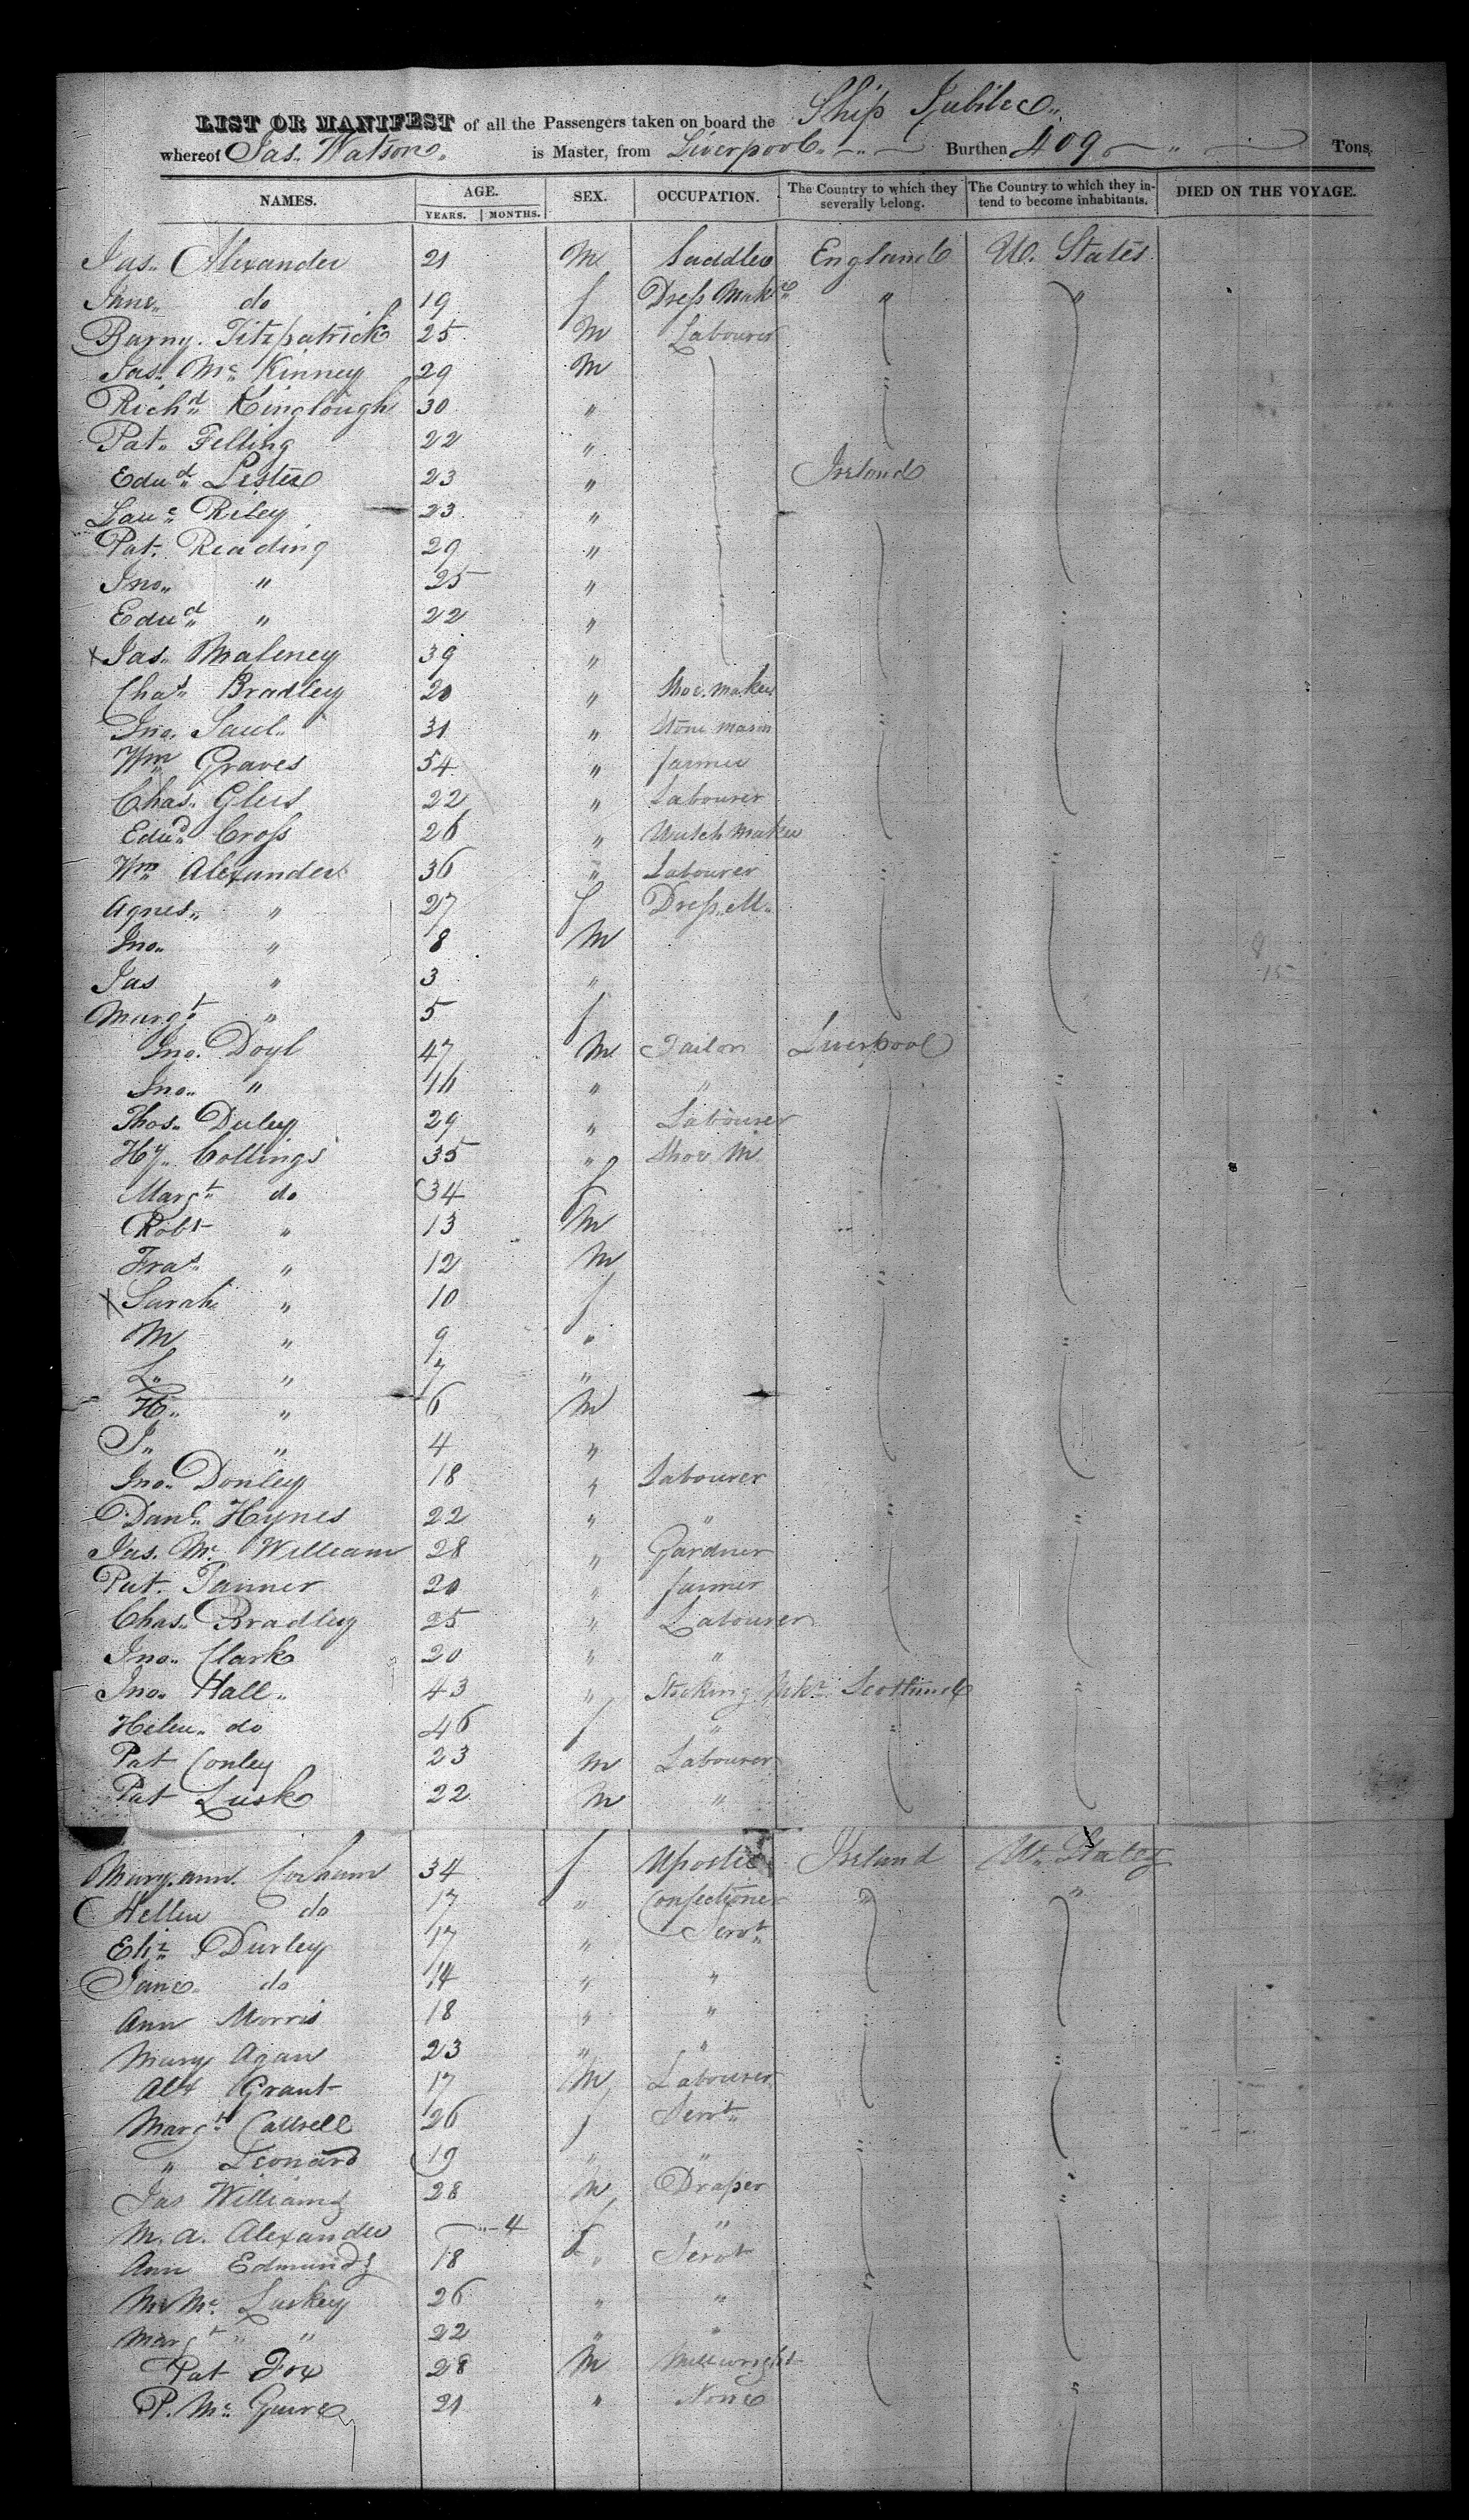 LIST OR MANIFEST of all the Passengers taken on board the Ship Jubilee
whereof Jas. Watson is Master, from Liverpool Burthen 409 Tons.
NAMES. AGE. SEX. OCCUPATION. The Country to which they severally belong. The Country to which they intend to become inhabitants. DIED ON THE VOYAGE.
YEARS. MONTHS.
Jas. Alexander 21 M Saddler England U. States
Jane do 19 f Dress Makr " "
Barny. Fitzpatrick 25 M Labourer
Jas. Mc Kinney 29 M
Richd Kinglough 30 "
Pat. Felling 22 "
Edwd Lester 23 " Ireland
Lauc Riley 23 "
Pat. Reading 29 "
Jno. " 25 "
Edwd " 22 "
x Jas. Maleney 39 "
Chas Bradley 20 " Shoe maker
Jno. Saul 31 " Stone mason
Wm Graves 54 " farmer
Chas. 22 " Labourer
Edwd Cross 26 " Watch maker
Wm Alexander 36 " Labourer
Agnes " 27 f Dress. M.
Jno. " 8 M
Jas " 3 "
Margt " 5 f
Jno. Doyl 47 M Tailor Liverpool
Jno. " " "
Thos. Duley 29 " Labourer
Hy. Collings 35 " Shoe M
Margt do 34 f
Robt " 13 M
Fras " 12 M
x Sarah " 10 f
M " 9 "
L. " 7 "
H. " 6 M
J. " 4 "
Jno. Donley 18 " Labourer
Danl. Hynes 22 " "
Jas. Mc William 28 " Gardner
Pat. Tanner 20 " farmer
Chas. Bradley 25 " Labourer
Jno. Clark 20 " "
Jno. Hall 43 " Stocking Mkr Scotland
Helen do 46 f "
Pat Conley 23 M Labourer
Pat Lusk 22 M "
Mary ann 34 f Ireland U. States
Hellen do 17 " Confectioner "
Eliz Durley 17 " Servt
Jane do 14 " "
Ann Morris 18 " "
Mary Agan 23 " "
Alex Grant 17 M Labourer
Margt 26 f Servt
" Leonard 19 " "
Jas Williams 28 M Draper
M. A. Alexander 4 f "
Ann Edmunds 18 " Servt
M Mc Luskey 26 " "
Margt " " 22 " "
Pat Fox 28 M Millwright
P. Mc Guire 21 " None